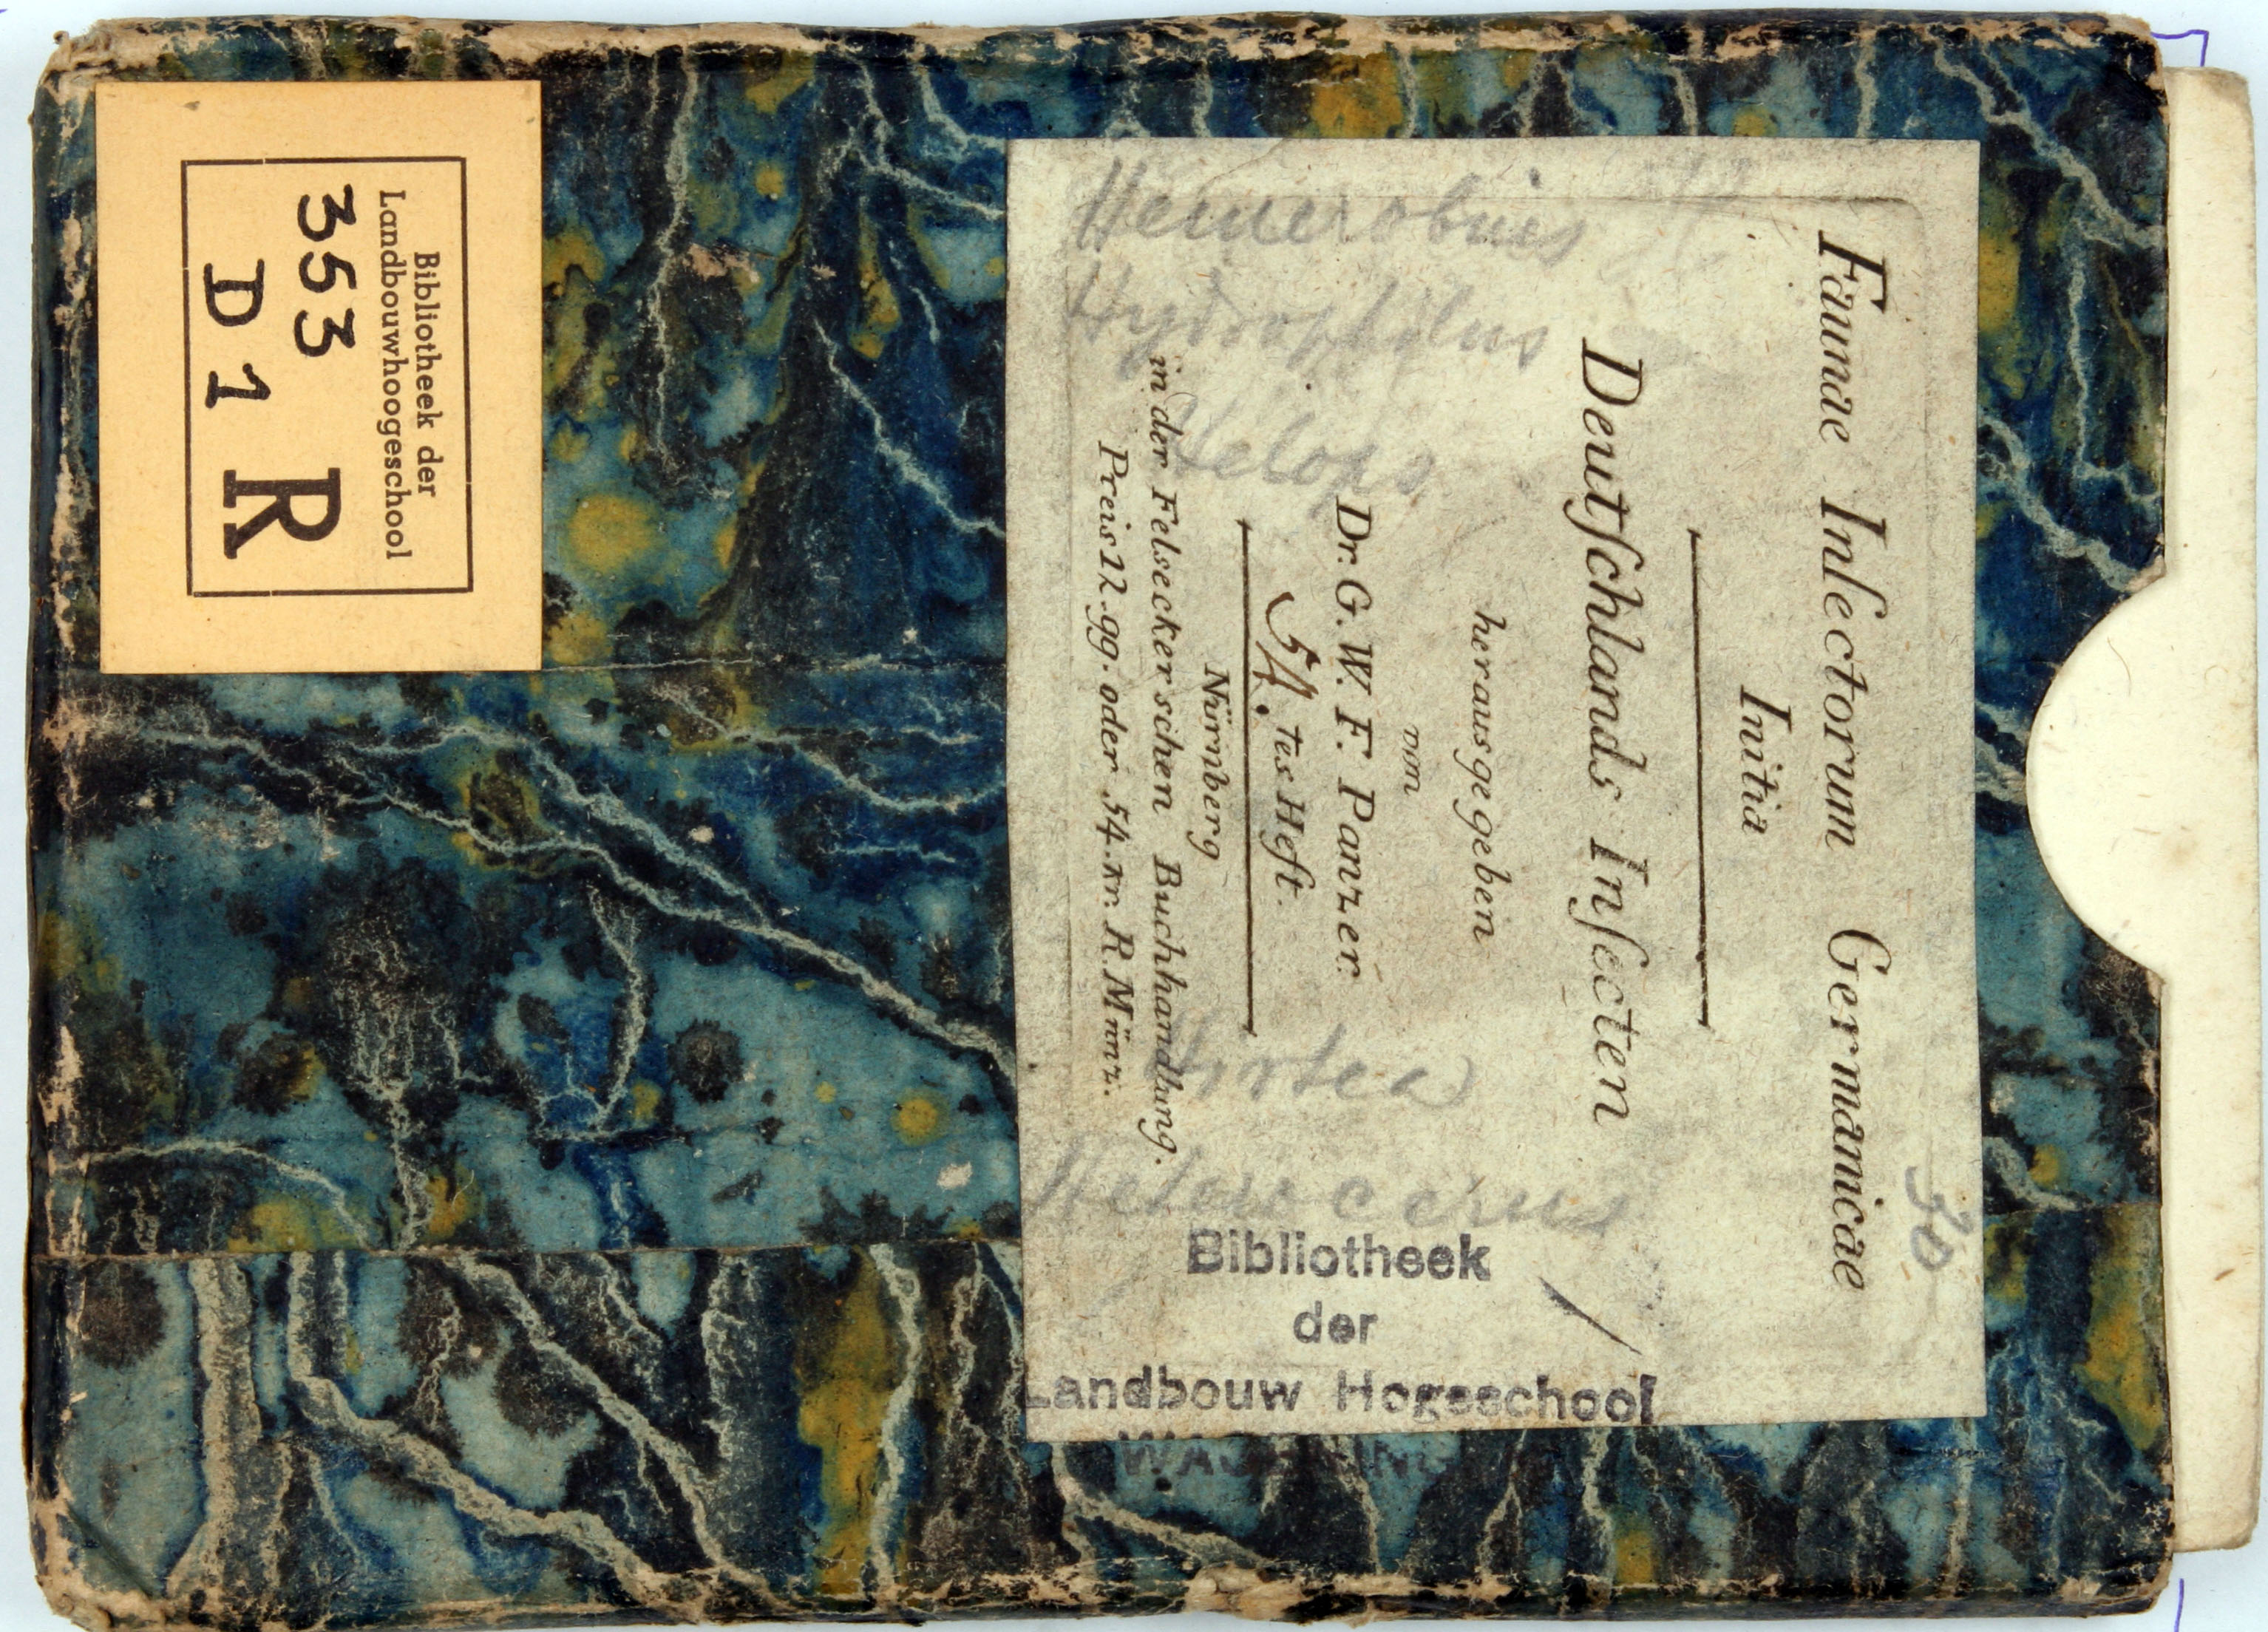 Faunae Insectorum Germanicae
Initia
Deutſchlands Inſecten
herausgegeben
von
Dr. G. W. F. Panzer.
tes Heft.
Nürnberg
in der Felseckerschen Buchhandlung.
Preis 12. gg. oder 54. kr. R. Münz.
30
Hemerobius
Hydrophilus
Helops
Hirtea
Heterocerus
Bibliotheek
der
Landbouw Hogeschool
Bibliotheek der
Landbouwhoogeschool
353
D 1 R